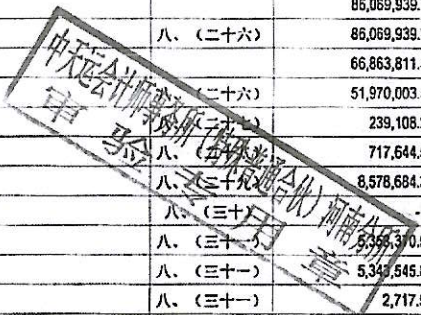 86,069,939.
八、（二十六） 86,069,939.
66,863,811.
（二十六） 51,970,003.
239,108.
717,644.
八、（三十九） 8,578,684.
八、（三十）
八、（三十一）
八、（三十一） 5,343,545.
八、（三十一） 2,717.
中天运会计师事务所（特殊普通合伙）河南分所
审验专用章